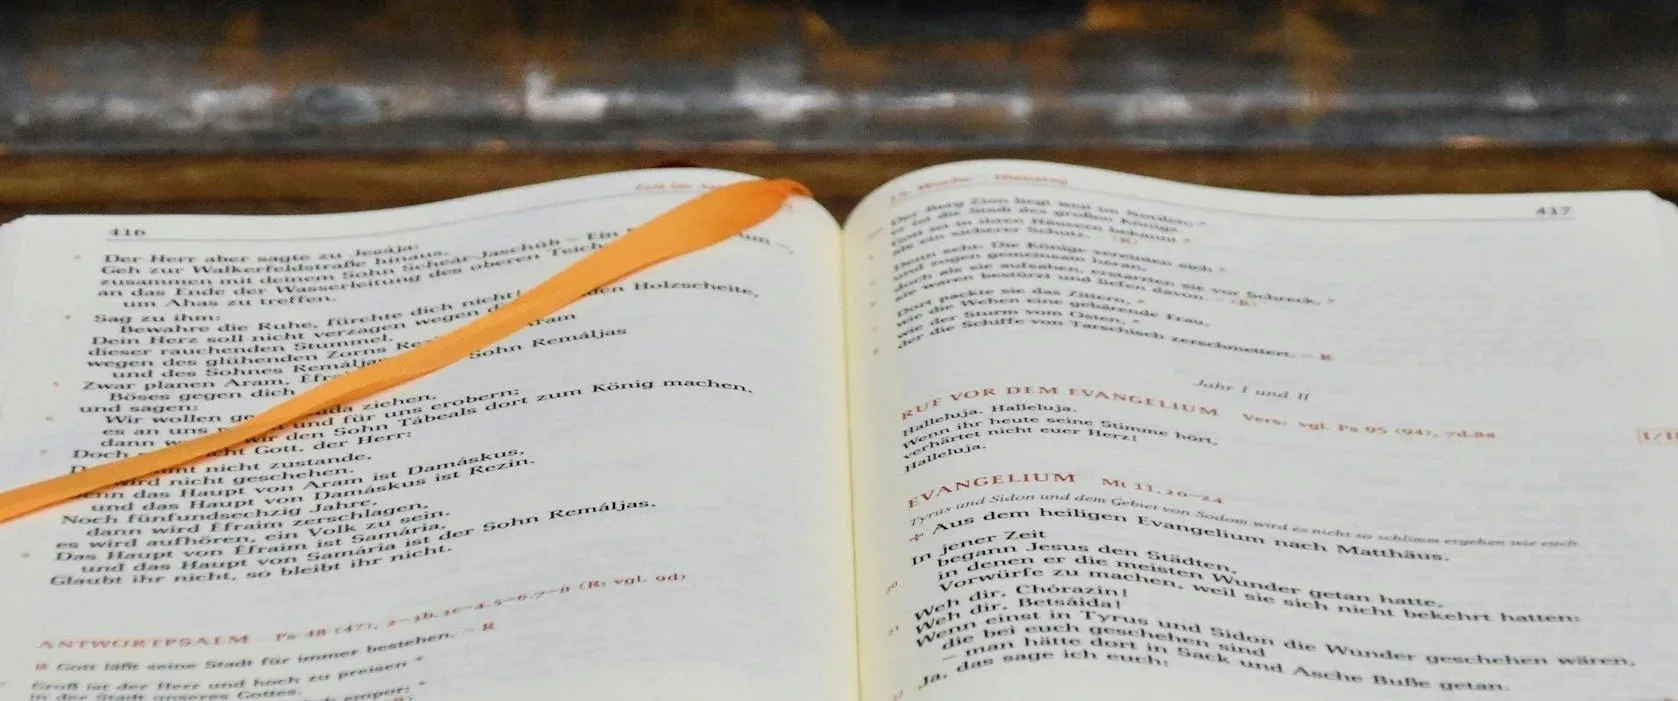 416
Zeit im
Der Herr aber sagte zu Jesája:
Geh zur Walkerfeldstraße hinaus,
zusammen mit deinem Sohn Scheár-Jaschúb – Ein
an das Ende der Wasserleitung des oberen Teich
um Ahas zu treffen.
Sag zu ihm:
Bewahre die Ruhe, fürchte dich nicht!
Dein Herz soll nicht verzagen wegen den Holzscheite,
dieser rauchenden Stummel,
wegen des glühenden Zorns Aram
und des Sohnes Remáljas
Zwar planen Aram, Éfrai Sohn Remáljas
Böses gegen dich
und sagen:
Wir wollen ge ziehen,
es an uns und für uns erobern;
dann wir den Sohn Tábeals dort zum König machen.
Doch Gott, der Herr:
nicht zustande,
wird nicht geschehen.
das Haupt von Aram ist Damáskus,
und das Haupt von Damáskus ist Rezin.
Noch fünfundsechzig Jahre,
dann wird Éfraim zerschlagen,
es wird aufhören, ein Volk zu sein.
Das Haupt von Éfraim ist Samária,
und das Haupt von Samária ist der Sohn Remáljas.
Glaubt ihr nicht, so bleibt ihr nicht.
ANTWORTPSALM Ps 48 (47), 2–3b.3c–4.5–6.7–8 (R: vgl. 9d)
R Gott läßt seine Stadt für immer bestehen. – R
Groß ist der Herr und hoch zu preisen *
in der Stadt unseres Gottes.
empor; *
Woche Dienstag
417
Der Berg Zion liegt weit im Norden, *
er ist die Stadt des großen Königs.
Gott ist in ihren Häusern bekannt *
als ein sicherer Schutz. – (R)
Denn seht: Die Könige vereinten sich *
und zogen gemeinsam heran;
doch als sie aufsahen, erstarrten sie vor Schreck, *
sie waren bestürzt und liefen davon. – (R)
Dort packte sie das Zittern, *
wie die Wehen eine gebärende Frau,
wie der Sturm vom Osten, *
der die Schiffe von Tarschisch zerschmettert. – R
Jahr I und II
RUF VOR DEM EVANGELIUM Vers: vgl. Ps 95 (94), 7d.8a
Halleluja. Halleluja.
Wenn ihr heute seine Stimme hört,
verhärtet nicht euer Herz!
Halleluja.
EVANGELIUM Mt 11, 20–24
Tyrus und Sidon und dem Gebiet von Sodom wird es nicht so schlimm ergehen wie euch
✛ Aus dem heiligen Evangelium nach Matthäus.
In jener Zeit
20 begann Jesus den Städten,
in denen er die meisten Wunder getan hatte,
Vorwürfe zu machen, weil sie sich nicht bekehrt hatten:
21 Weh dir, Chórazin!
Weh dir, Betsáida!
Wenn einst in Tyrus und Sidon die Wunder geschehen wären,
die bei euch geschehen sind
– man hätte dort in Sack und Asche Buße getan.
22 Ja, das sage ich euch: